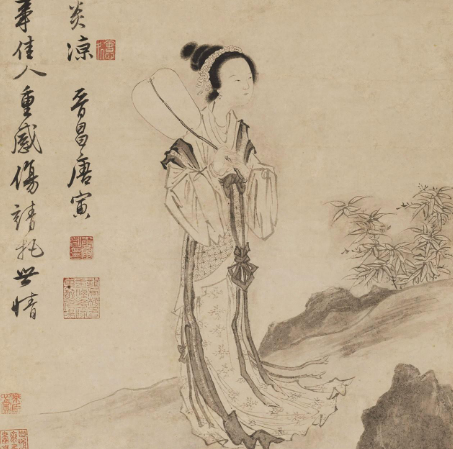 炎涼 晉昌唐寅
事佳人重感傷請把世情